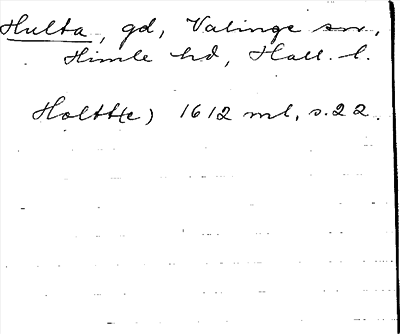 Hulta, gd, Valinge sn,
Himle hd, Hall. l.
Holtt(e) 1612 ml, s. 22.